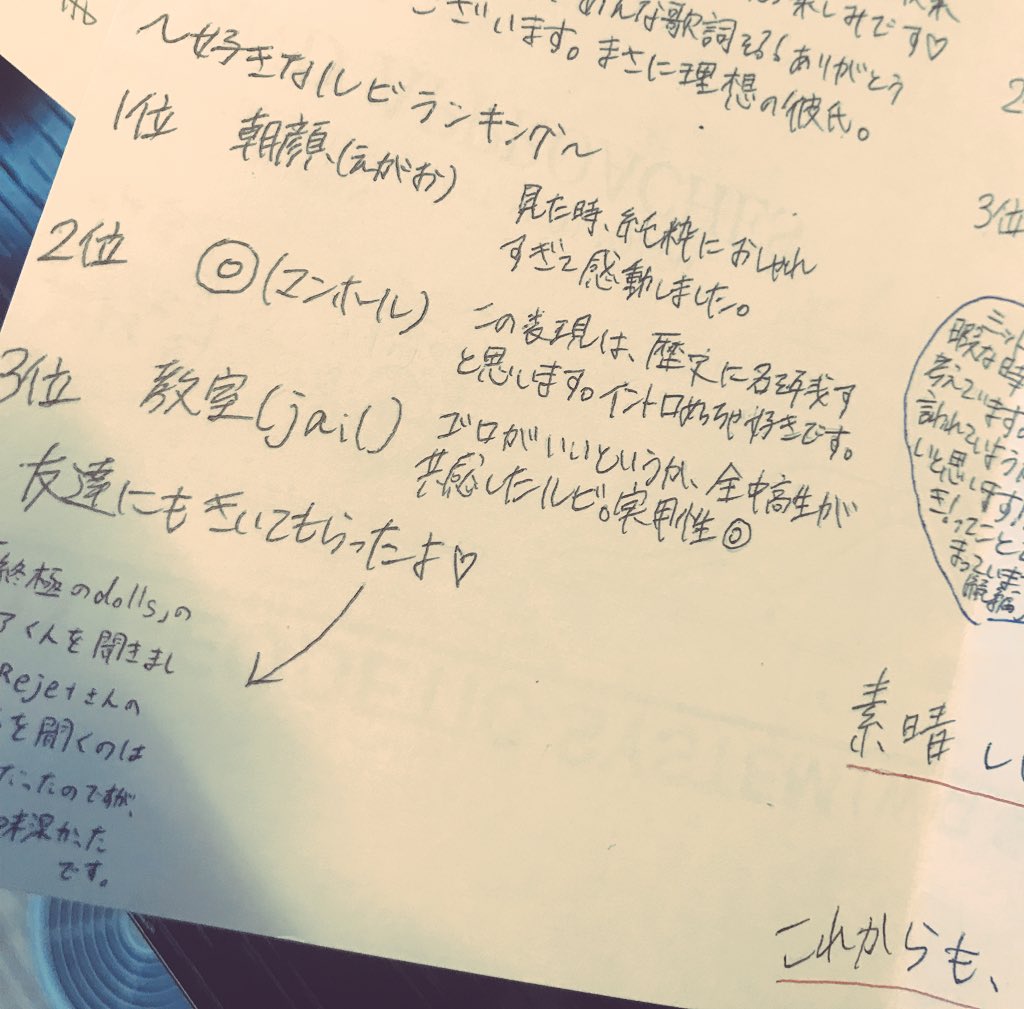 んな歌詞
ありがとう
ございます。まさに理想の彼氏。
楽しみです♡
〜好きなルビランキング〜
1位 朝顔(えがお)
見た時、純粋におしゃれ
すぎて感動しました。
2位 ◎(マンホール)
この表現は、歴史に名を残す
と思います。イントロめっちゃ好きです。
3位 教室(jail)
ゴロがいいというか、全中高生が
共感したルビ。実用性◎
友達にもきいてもらったよ♡
終極のdolls」の
くんを聞きまし
Rejetさんの
を聞くのは
だったのですが、
味深かった
です。
2
3位
ミット
暇な時
考えています
言われていよう
いと思います!
き!ってこと
まっていま
素晴し
これからも、